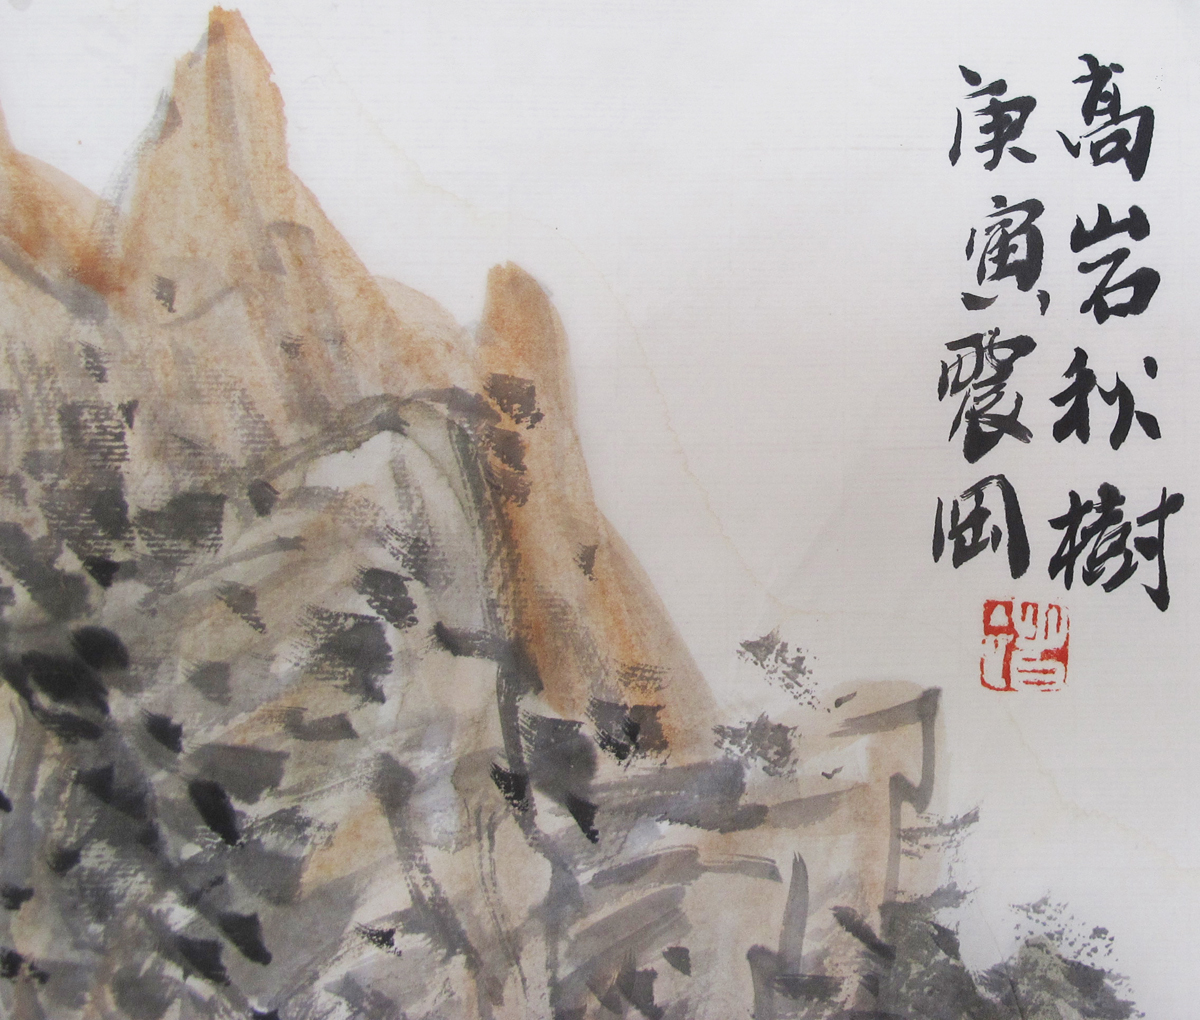 高岩秋樹
庚寅震岡